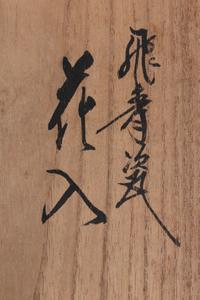 飛青瓷
花入